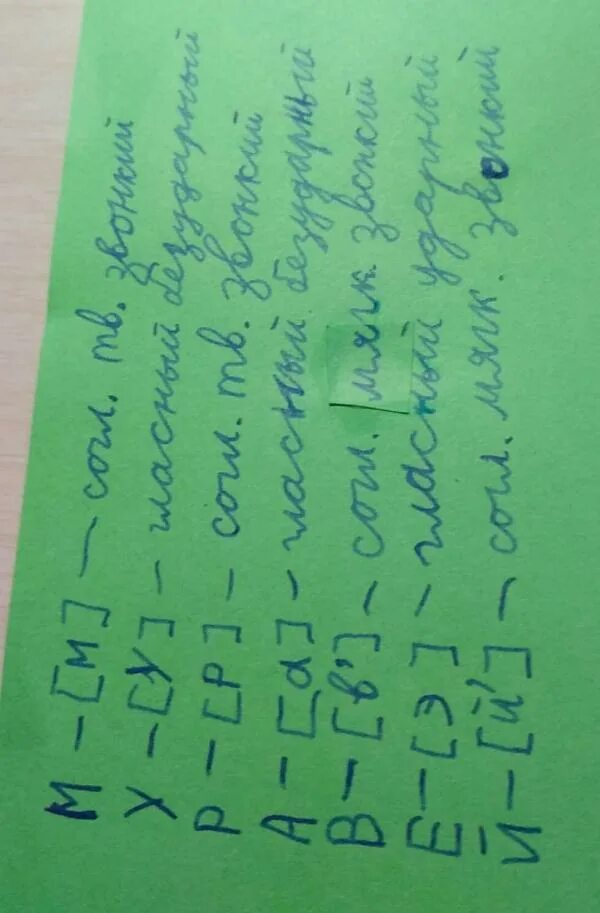 М – [м] – согл. тв. звонкий
У – [у] – гласный безударный
Р – [р] – согл. тв. звонкий
А – [а] – гласный безударный
В – [в'] – согл. мягк. звонкий
Е – [э] – гласный ударный
Й – [й'] – согл. мягк. звонкий